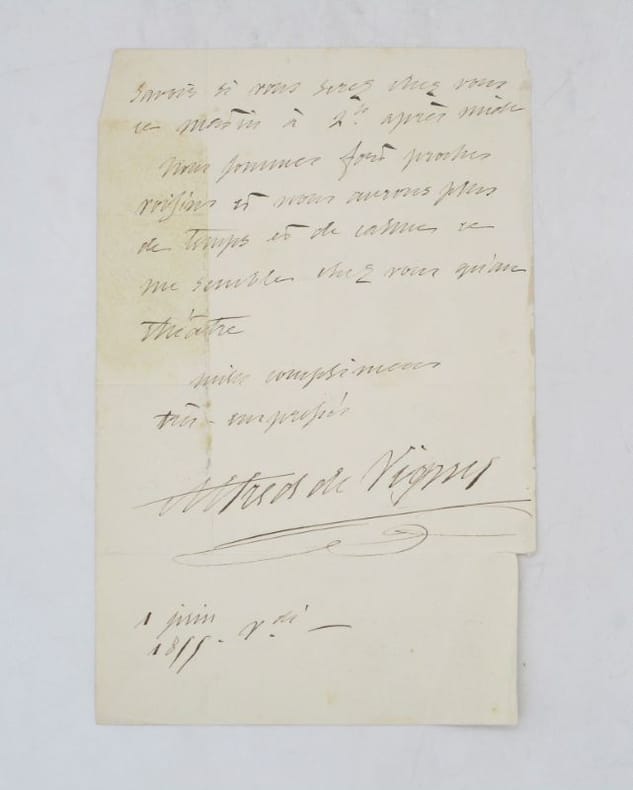 savoir si vous serez chez vous
ce matin à 2h. après midi
Nous sommes fort proches
voisins et nous aurons plus
de temps et de calme ce
me semble chez vous qu'au
théâtre
mille complimens
très-empressés
Alfred de Vigny
1 juin
1855 - Vdi —